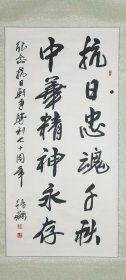 抗日忠魂千秋
中華精神永存
纪念抗日战争胜利七十周年